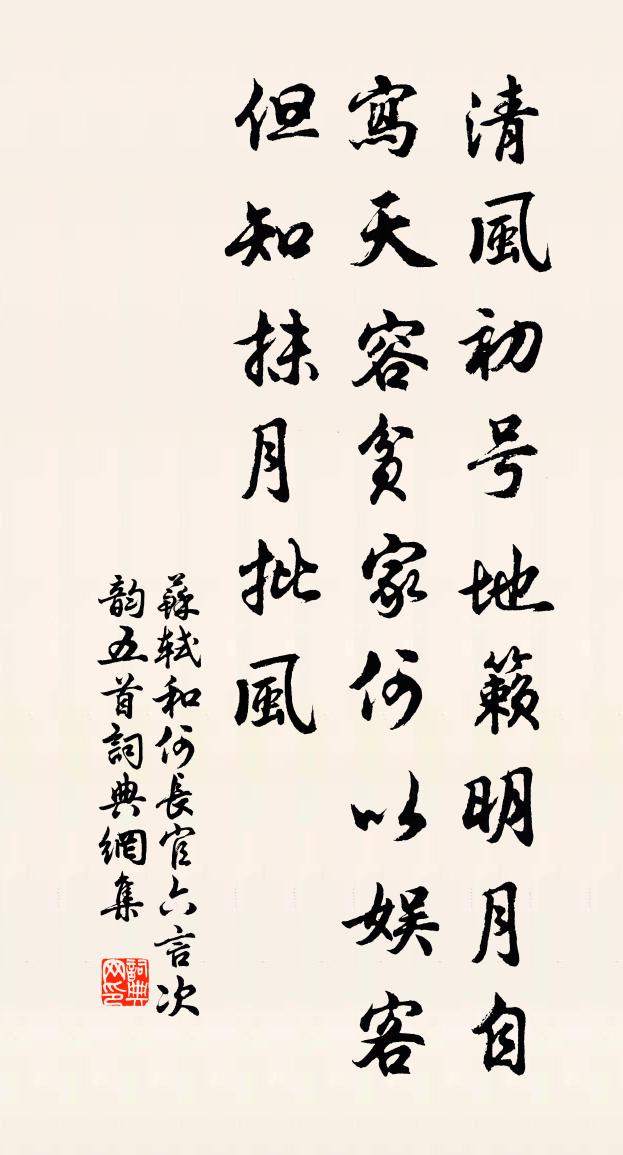 清風初号地籟明月自
寫天容貧家何以娱客
但知抹月批風
蘇軾和何長官六言次
韵五首詞典網集
詞典網印